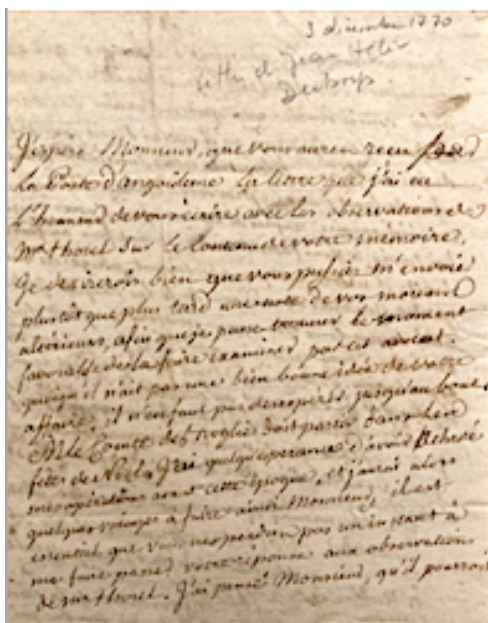 3 décembre 1770
lettre de Jean Hélie
Desbord
J'espère Monsieur, que vous aurez recu
la Poste d'angouleme la lettre que j'ai eu
L'honneur de vous écrire avec les observations de
Mr thorel sur le contenu de votre mémoire,
je desirerois bien que vous pussiez m'envoier
plustôt que plus tard une note de vos moiens
ulterieurs, afin que je puisse trouver le moment
favorable de la faire examiner par cet avocat.
quoiqu'il n'ait pas une bien bonne idée de votre
affaire, il n'en faut pas desesperer jusqu'au bout.
Mr le Comte des doit partir dans les
fetes de Noel. J'ai quelque esperance d'avoir achevé
mes opérations avant cette époque, et j'aurai alors
quelques voyages à faire ainsi Monsieur, il est
essentiel que vous ne perdiez pas un instant à
me faire passer votre réponse aux observations
de Mr thorel. J'ai pensé Monsieur, qu'il pourroit